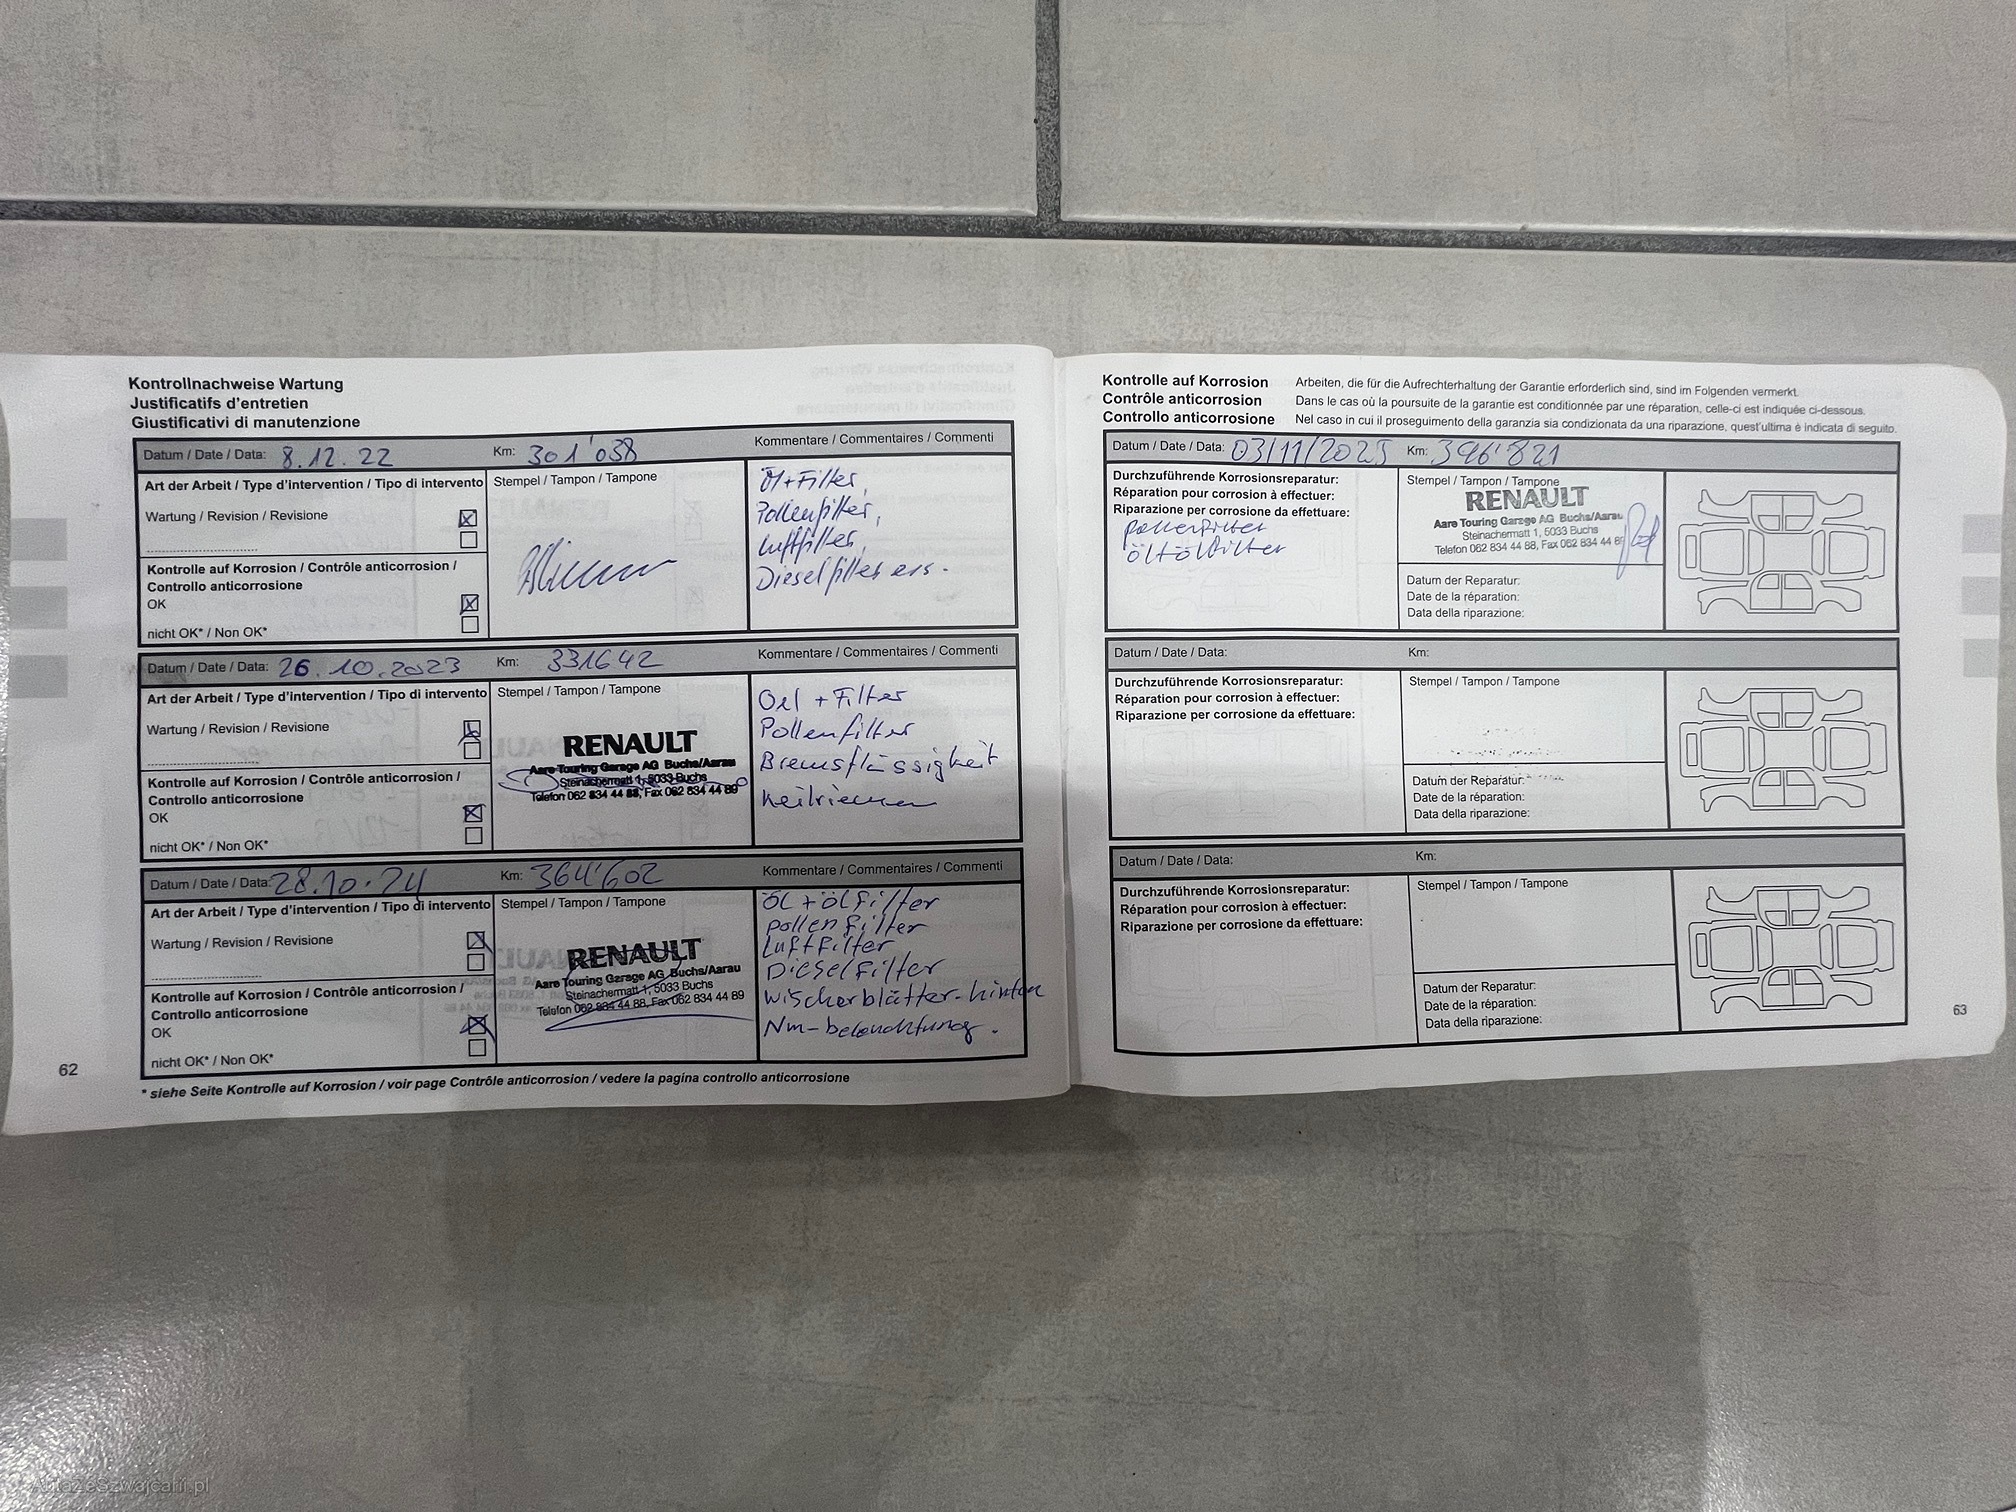 Kontrollnachweise Wartung
Justificatifs d'entretien
Giustificativi di manutenzione
Datum / Date / Data: 8.12.22 Km: 301'038 Kommentare / Commentaires / Commenti
Art der Arbeit / Type d'intervention / Tipo di intervento
Stempel / Tampon / Tampone
Wartung / Revision / Revisione
Kontrolle auf Korrosion / Contrôle anticorrosion /
Controllo anticorrosione
OK
nicht OK* / Non OK*
Öl+Filter,
Pollenfilter,
Luftfilter,
Dieselfilter ers.
Datum / Date / Data: 26.10.2023 Km: 331642 Kommentare / Commentaires / Commenti
Art der Arbeit / Type d'intervention / Tipo di intervento
Stempel / Tampon / Tampone
Wartung / Revision / Revisione
Kontrolle auf Korrosion / Contrôle anticorrosion /
Controllo anticorrosione
OK
nicht OK* / Non OK*
RENAULT
Aare Touring Garage AG Buchs/Aarau
Steinachermatt 1, 5033 Buchs
Telefon 062 834 44 88, Fax 062 834 44 89
Oel + Filter
Pollenfilter
Bremsflüssigkeit
Keilriemen
Datum / Date / Data: 28.10.24 Km: 364'602 Kommentare / Commentaires / Commenti
Art der Arbeit / Type d'intervention / Tipo di intervento
Stempel / Tampon / Tampone
Wartung / Revision / Revisione
Kontrolle auf Korrosion / Contrôle anticorrosion /
Controllo anticorrosione
OK
nicht OK* / Non OK*
RENAULT
Aare Touring Garage AG Buchs/Aarau
Steinachermatt 1, 5033 Buchs
Telefon 062 834 44 88, Fax 062 834 44 89
Öl + ölfilter
pollenfilter
Luftfilter
Dieselfilter
wischerblätter-hinten
Nm-beleuchtung.
* siehe Seite Kontrolle auf Korrosion / voir page Contrôle anticorrosion / vedere la pagina controllo anticorrosione
62
Kontrolle auf Korrosion Arbeiten, die für die Aufrechterhaltung der Garantie erforderlich sind, sind im Folgenden vermerkt.
Contrôle anticorrosion Dans le cas où la poursuite de la garantie est conditionnée par une réparation, celle-ci est indiquée ci-dessous.
Controllo anticorrosione Nel caso in cui il proseguimento della garanzia sia condizionata da una riparazione, quest'ultima è indicata di seguito.
Datum / Date / Data: 03/11/2025 Km: 396'821
Durchzuführende Korrosionsreparatur:
Réparation pour corrosion à effectuer:
Riparazione per corrosione da effettuare:
pollenfilter
öl+ölfilter
Stempel / Tampon / Tampone
RENAULT
Aare Touring Garage AG Buchs/Aarau
Steinachermatt 1, 5033 Buchs
Telefon 062 834 44 88, Fax 062 834 44 89
Datum der Reparatur:
Date de la réparation:
Data della riparazione:
Datum / Date / Data: Km:
Durchzuführende Korrosionsreparatur:
Réparation pour corrosion à effectuer:
Riparazione per corrosione da effettuare:
Stempel / Tampon / Tampone
Datum der Reparatur:
Date de la réparation:
Data della riparazione:
Datum / Date / Data: Km:
Durchzuführende Korrosionsreparatur:
Réparation pour corrosion à effectuer:
Riparazione per corrosione da effettuare:
Stempel / Tampon / Tampone
Datum der Reparatur:
Date de la réparation:
Data della riparazione:
63
AutaZeSzwajcarii.pl